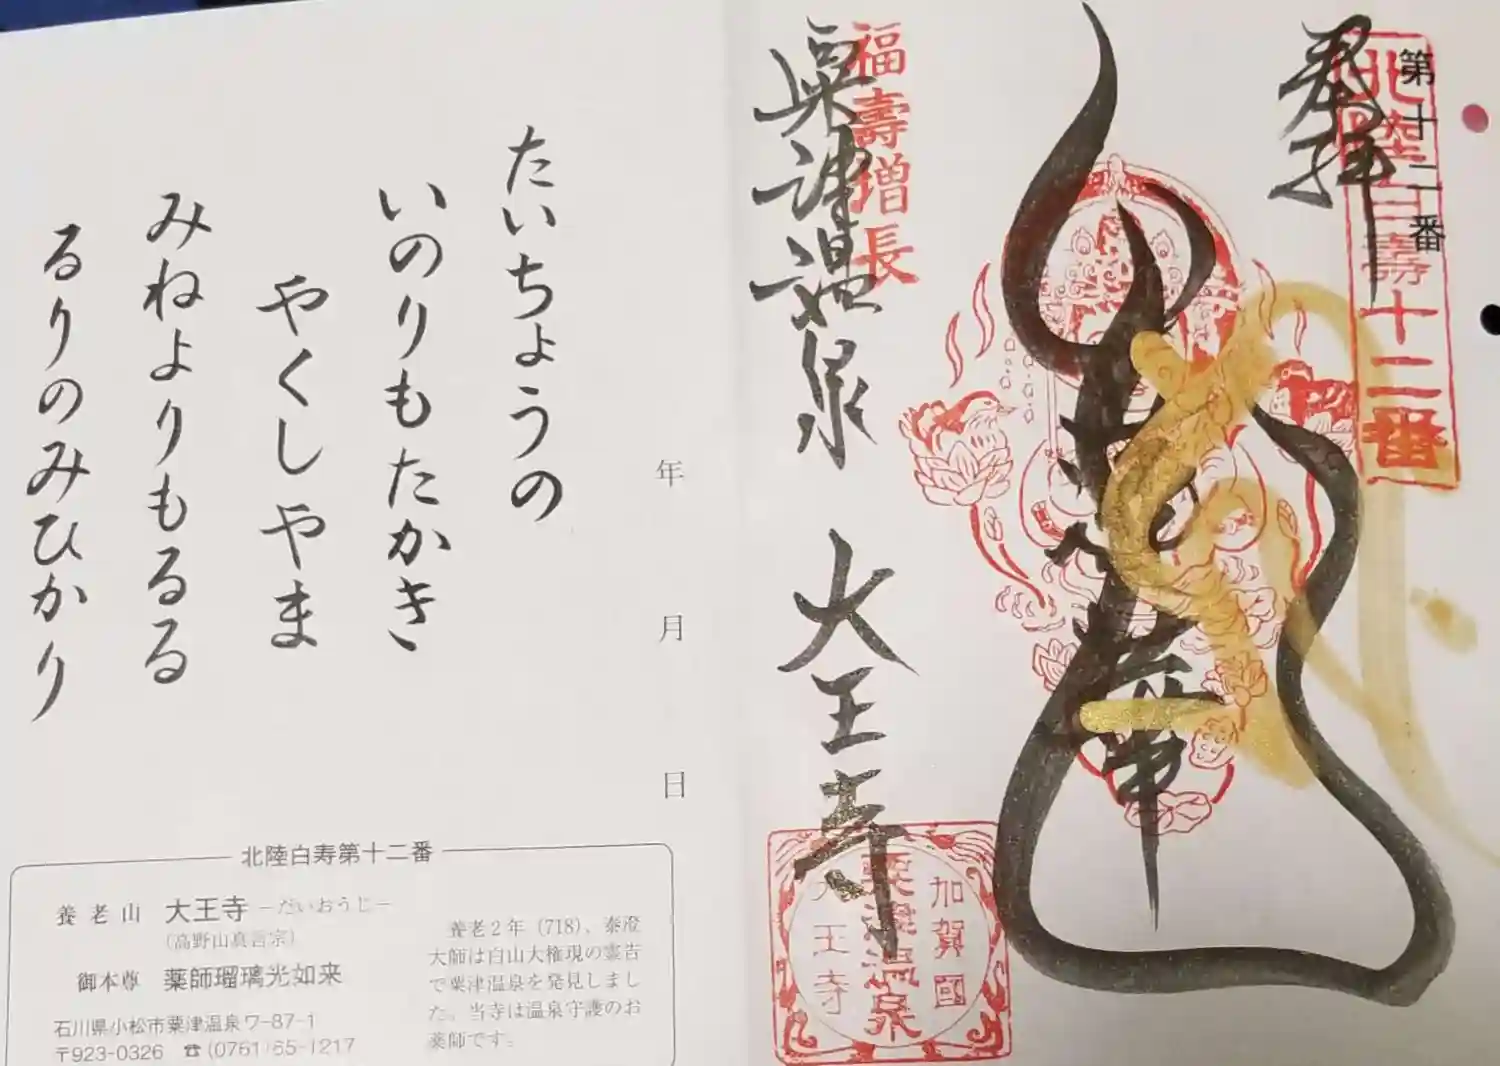 第十二番
奉拝
北陸白壽十二番
福壽増長
粟津温泉
大王寺
加賀國
粟津温泉
大王寺
たいちょうの
いのりもたかき
やくしやま
みねよりもるる
るりのみひかり
年 月 日
北陸白寿第十二番
養老山 大王寺 －だいおうじ－
（高野山真言宗）
御本尊 薬師瑠璃光如来
石川県小松市粟津温泉ワ-87-1
〒923-0326 ☎(0761)65-1217
養老2年（718）、泰澄
大師は白山大権現の霊告
で粟津温泉を発見しまし
た。当寺は温泉守護のお
薬師です。